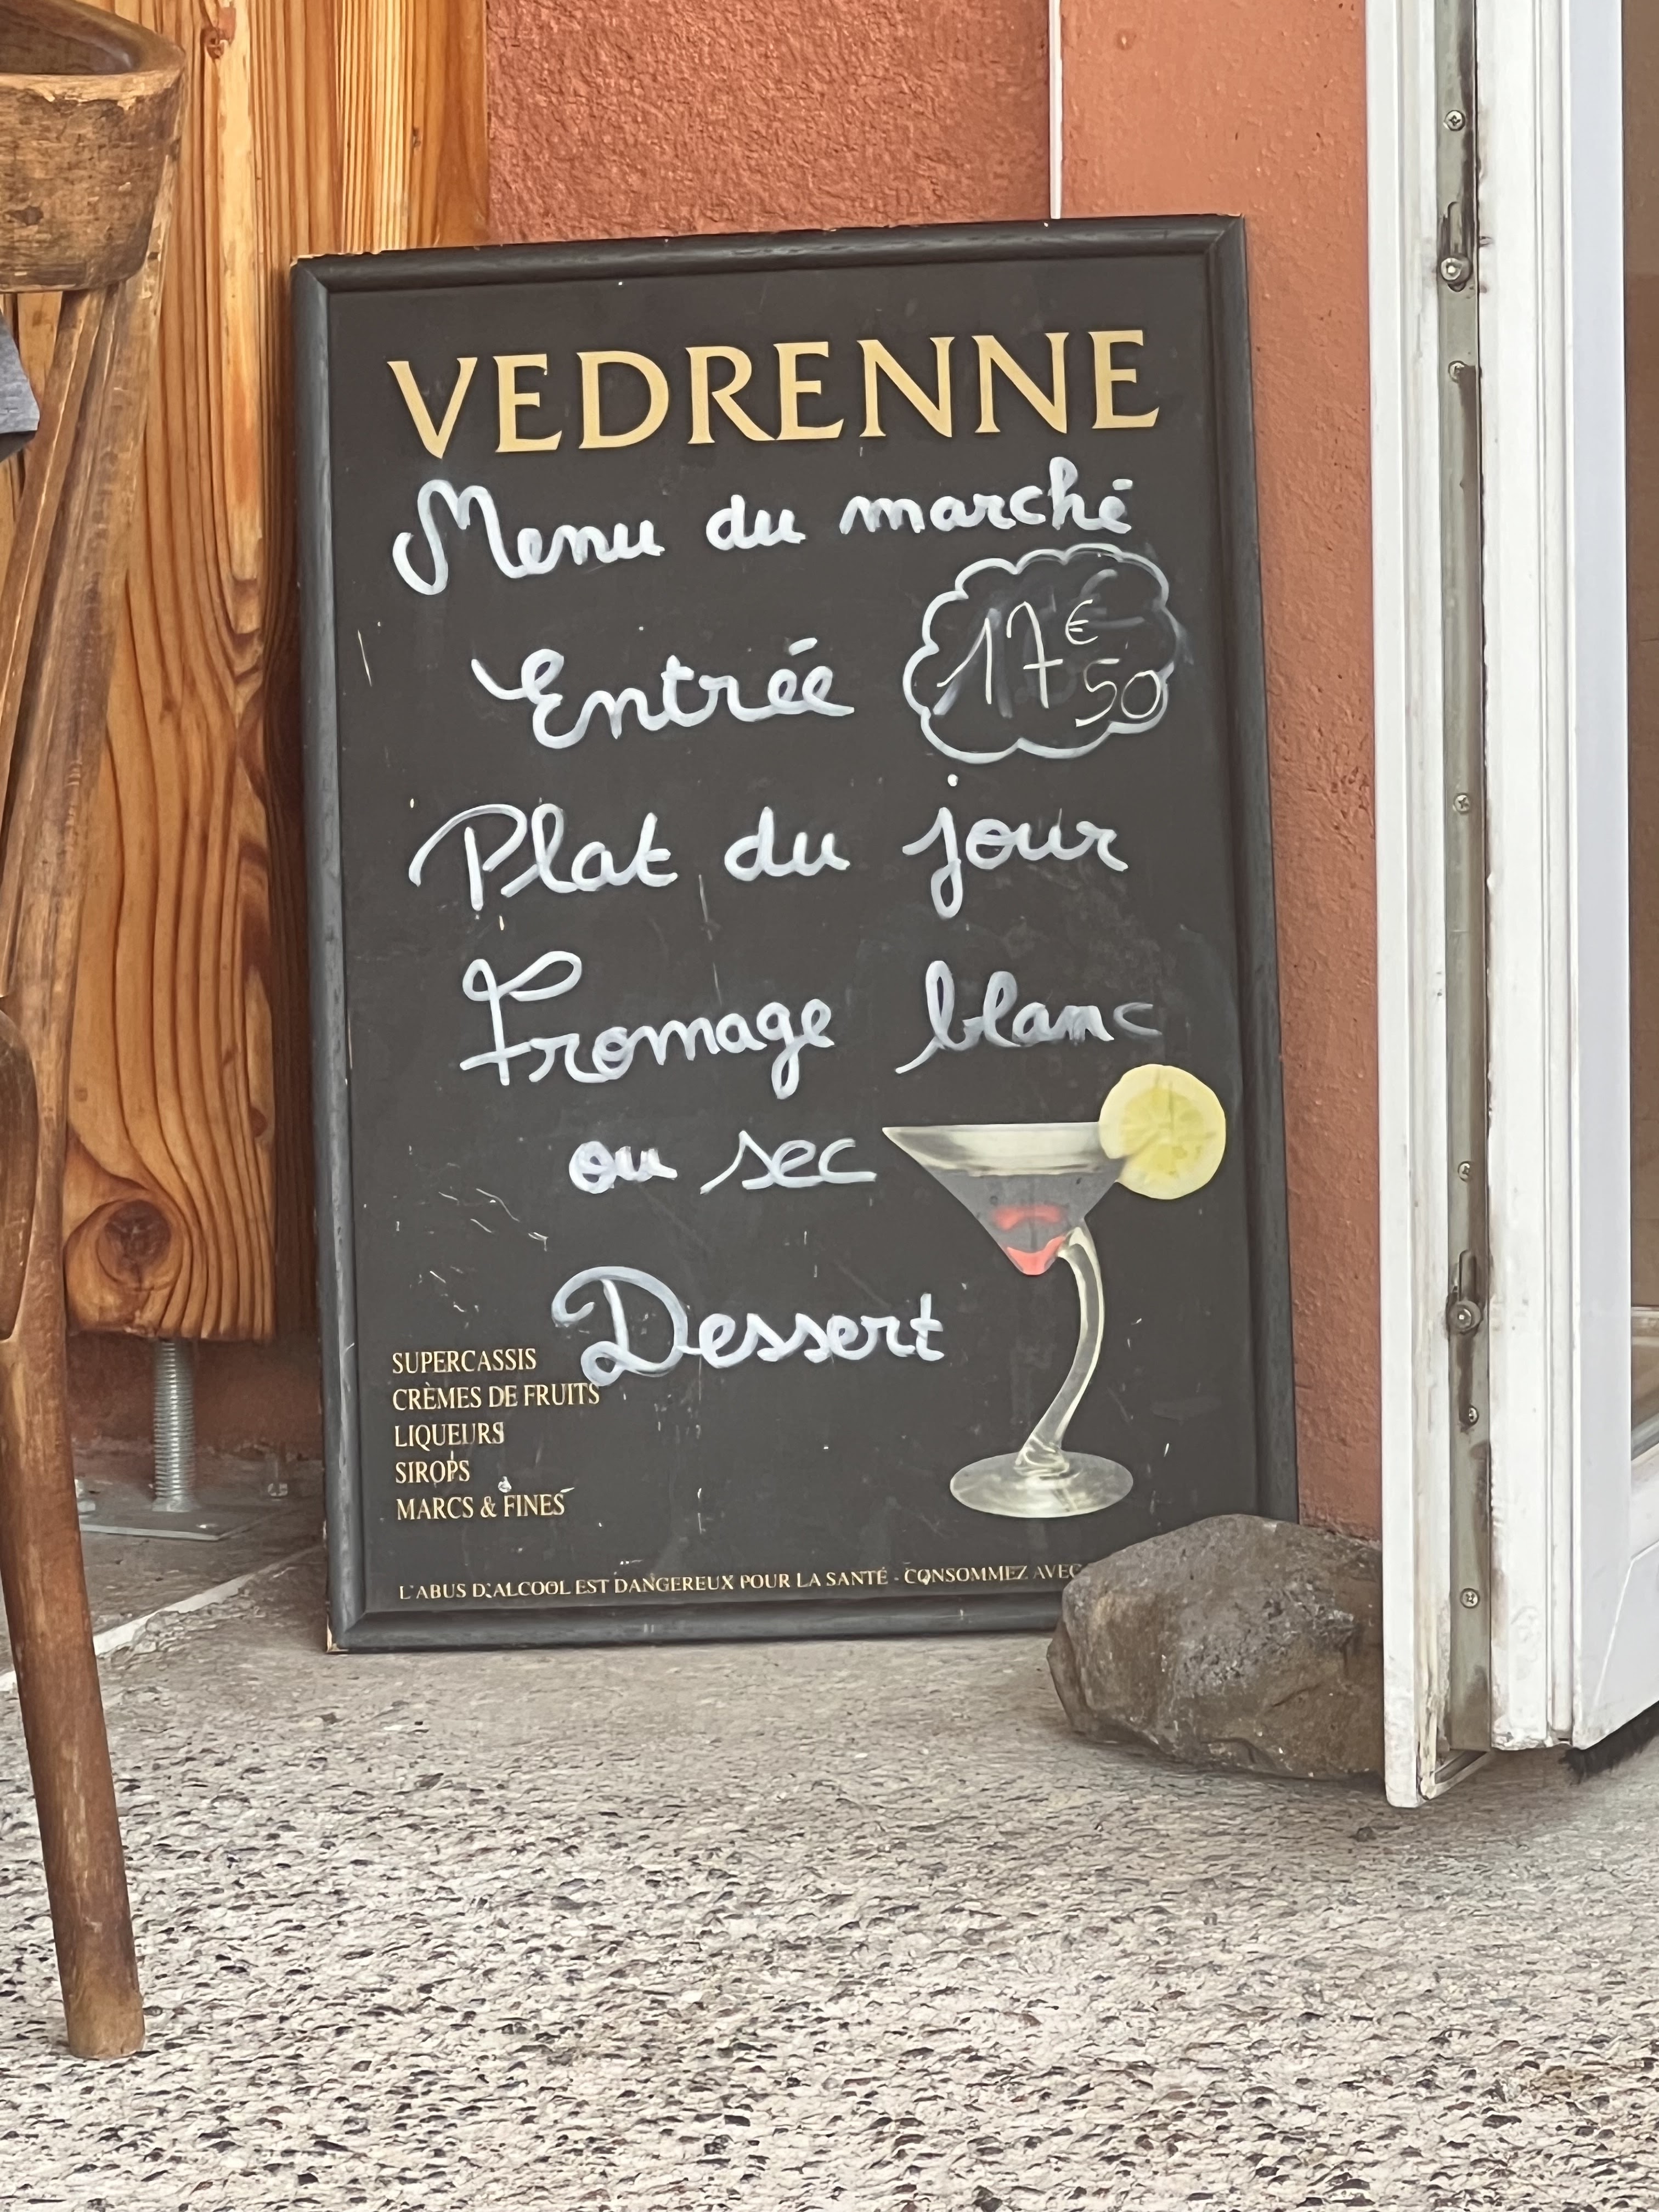 VEDRENNE
Menu du marché
Entrée 17€50
Plat du jour
Fromage blanc
ou sec
Dessert
SUPERCASSIS
CRÈMES DE FRUITS
LIQUEURS
SIROPS
MARCS & FINES
L'ABUS D'ALCOOL EST DANGEREUX POUR LA SANTÉ - CONSOMMEZ AVEC